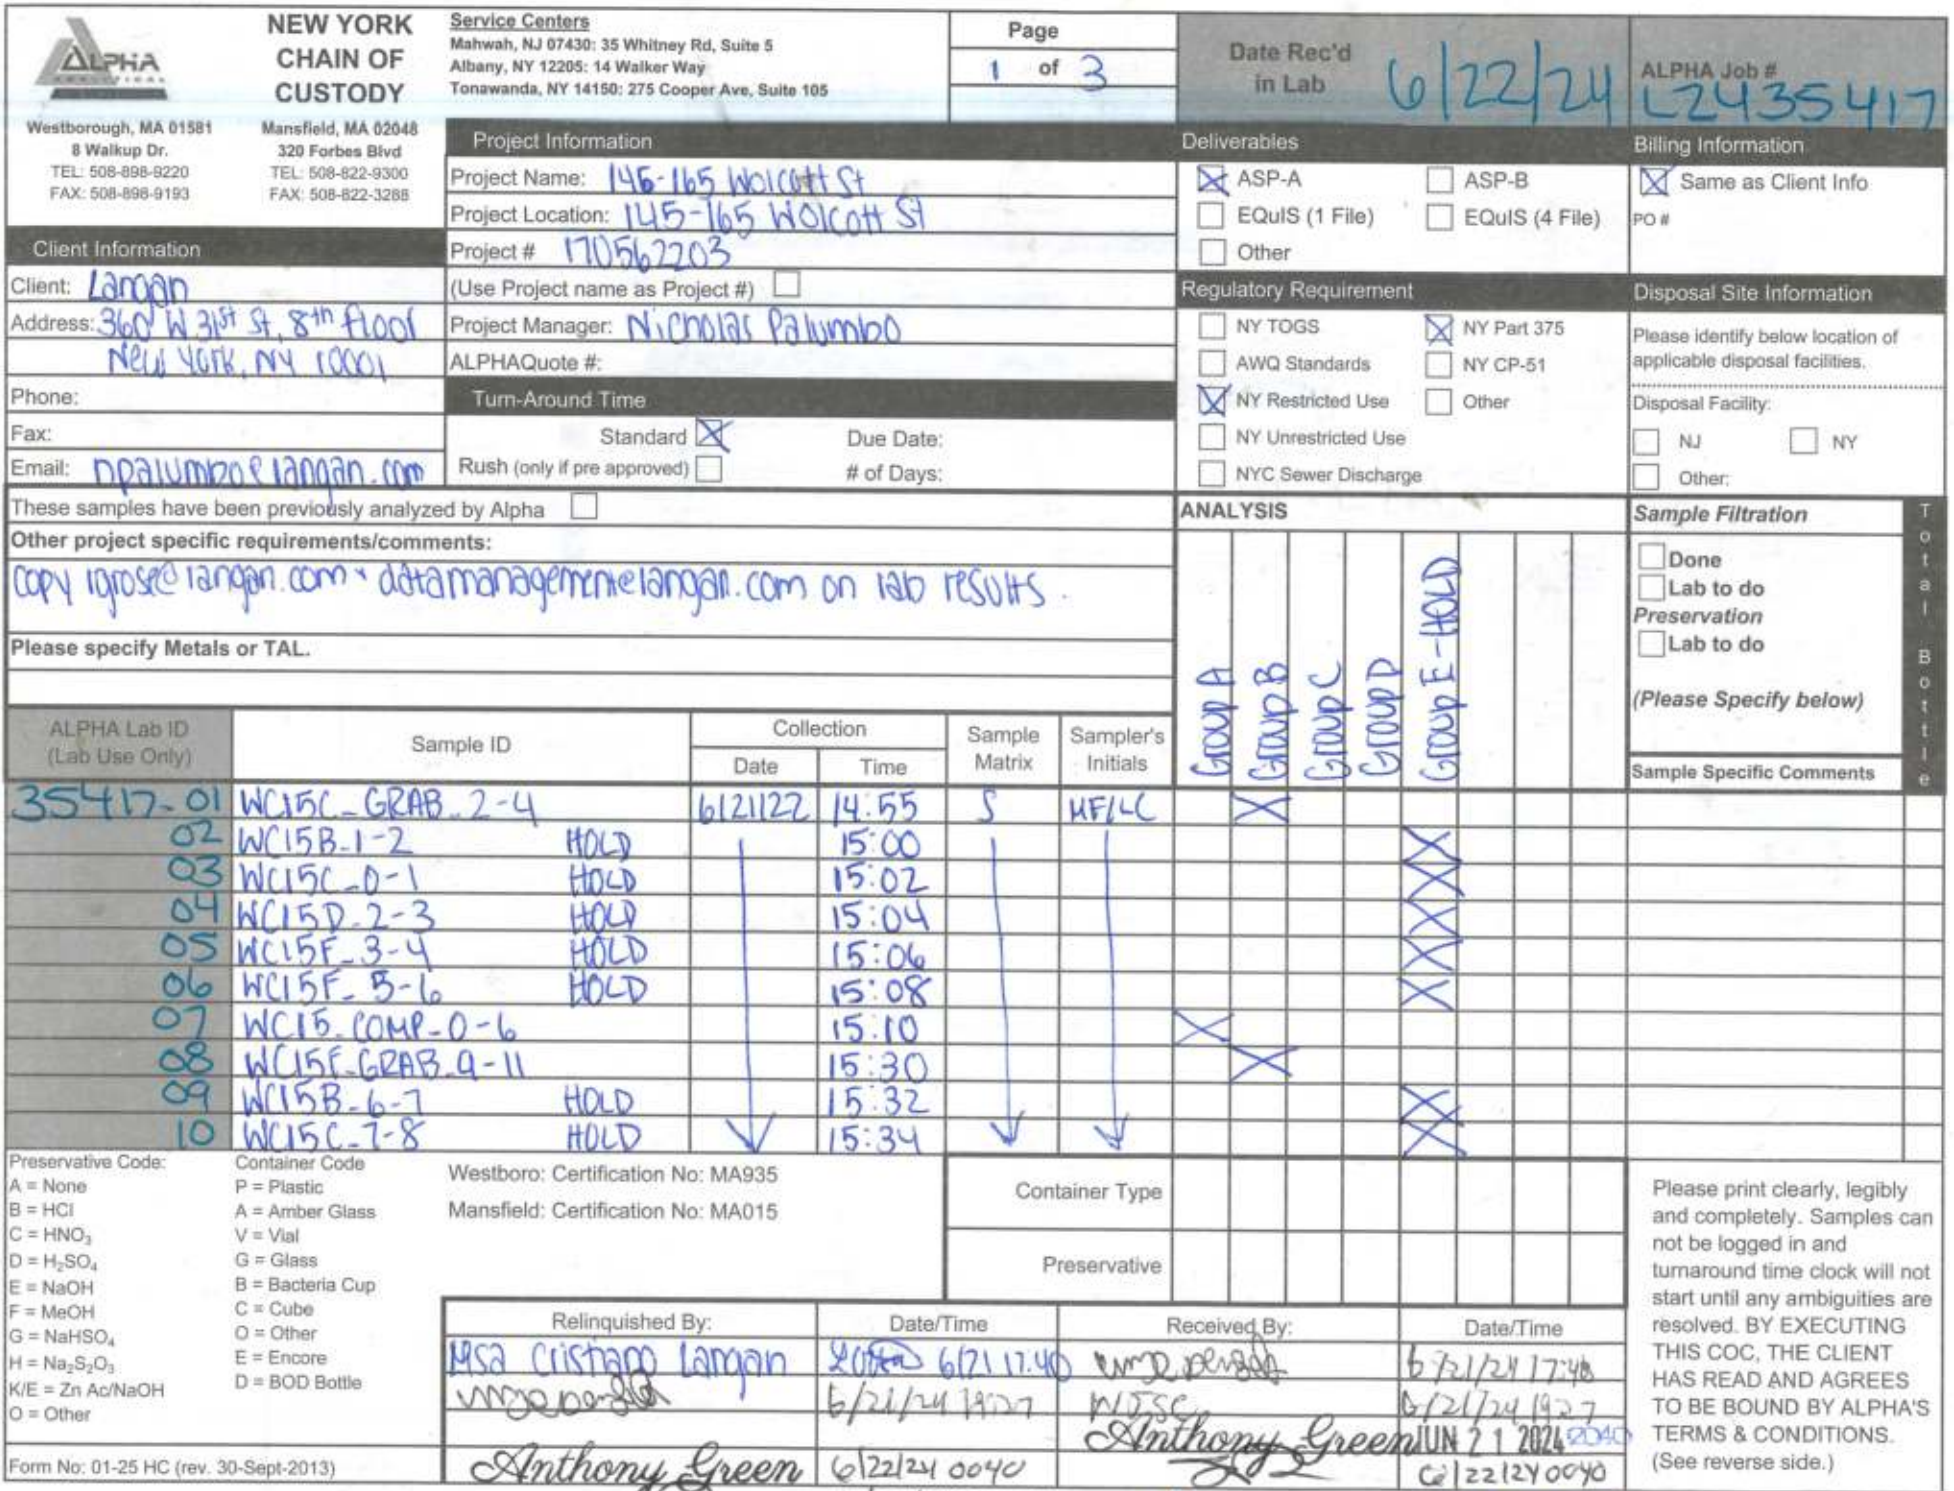 ALPHA
ANALYTICAL
NEW YORK
CHAIN OF
CUSTODY
Westborough, MA 01581
8 Walkup Dr.
TEL: 508-898-9220
FAX: 508-898-9193
Mansfield, MA 02048
320 Forbes Blvd
TEL: 508-822-9300
FAX: 508-822-3288
Service Centers
Mahwah, NJ 07430: 35 Whitney Rd, Suite 5
Albany, NY 12205: 14 Walker Way
Tonawanda, NY 14150: 275 Cooper Ave, Suite 105
Page
1 of 3
Date Rec'd
in Lab
6/22/24
ALPHA Job #
L2435417
Client Information
Client: Langan
Address: 360 W 31st St, 8th floor
New York, NY 10001
Phone:
Fax:
Email: npalumbo@langan.com
Project Information
Project Name: 145-165 Wolcott St
Project Location: 145-165 Wolcott St
Project # 170562203
(Use Project name as Project #)
Project Manager: Nicholas Palumbo
ALPHAQuote #:
Turn-Around Time
Standard Due Date:
Rush (only if pre approved) # of Days:
Deliverables
ASP-A ASP-B
EQuIS (1 File) EQuIS (4 File)
Other
Regulatory Requirement
NY TOGS NY Part 375
AWQ Standards NY CP-51
NY Restricted Use Other
NY Unrestricted Use
NYC Sewer Discharge
Billing Information
Same as Client Info
PO #
Disposal Site Information
Please identify below location of
applicable disposal facilities.
Disposal Facility:
NJ NY
Other:
These samples have been previously analyzed by Alpha
Other project specific requirements/comments:
copy igrose@langan.com + datamanagement@langan.com on lab results.
Please specify Metals or TAL.
ANALYSIS
Group A
Group B
Group C
Group D
Group E-HOLD
Sample Filtration
Done
Lab to do
Preservation
Lab to do
(Please Specify below)
Total Bottle
ALPHA Lab ID
(Lab Use Only)
Sample ID
Collection
Date Time
Sample
Matrix
Sampler's
Initials
Sample Specific Comments
35417-01 WC15C_GRAB_2-4 6/21/22 14:55 S MF/LC X
02 WC15B_1-2 HOLD 15:00 X
03 WC15C_0-1 HOLD 15:02 X
04 WC15D_2-3 HOLD 15:04 X
05 WC15F_3-4 HOLD 15:06 X
06 WC15F_5-6 HOLD 15:08 X
07 WC15_COMP_0-6 15:10 X
08 WC15F_GRAB_9-11 15:30 X
09 WC15B_6-7 HOLD 15:32 X
10 WC15C_7-8 HOLD 15:34 X
Preservative Code:
A = None
B = HCl
C = HNO3
D = H2SO4
E = NaOH
F = MeOH
G = NaHSO4
H = Na2S2O3
K/E = Zn Ac/NaOH
O = Other
Container Code
P = Plastic
A = Amber Glass
V = Vial
G = Glass
B = Bacteria Cup
C = Cube
O = Other
E = Encore
D = BOD Bottle
Westboro: Certification No: MA935
Mansfield: Certification No: MA015
Container Type
Preservative
Relinquished By: Date/Time Received By: Date/Time
Cristiano Langan 6/21 17:40 6/21/24 17:40
6/21/24 1927 6/21/24 1927
Anthony Green JUN 21 2024
Anthony Green 6/22/24 0040 6/22/24 0040
Please print clearly, legibly
and completely. Samples can
not be logged in and
turnaround time clock will not
start until any ambiguities are
resolved. BY EXECUTING
THIS COC, THE CLIENT
HAS READ AND AGREES
TO BE BOUND BY ALPHA'S
TERMS & CONDITIONS.
(See reverse side.)
Form No: 01-25 HC (rev. 30-Sept-2013)